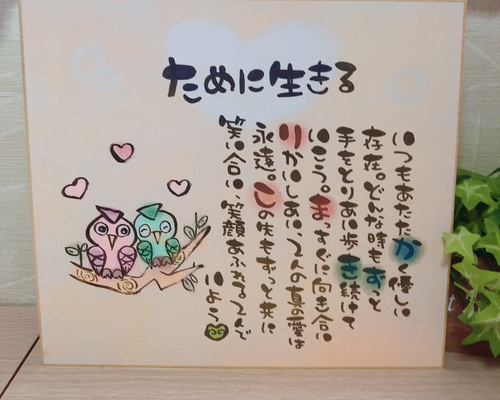 ために生きる
いつもあたたかく優しい
存在。どんな時もずっと
手をとりあい歩き続けて
いこう。まっすぐに向き合い
りかいしあい、2人の真の愛は
永遠。この先もずっと共に
笑い合い 笑顔あふれる2人で
いよう